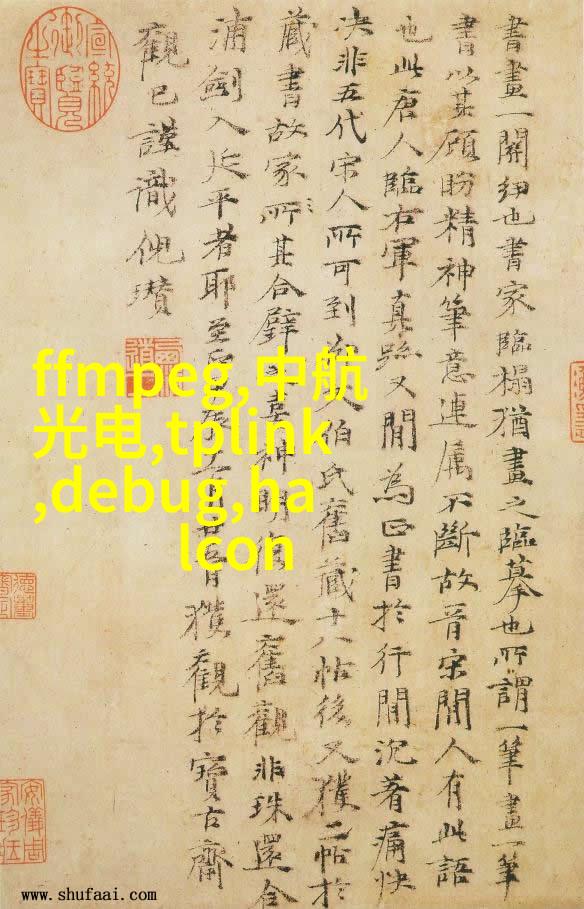 書畫一關紐也書家臨搨猶畫之臨摹也所謂一筆畫一筆
書以其顧盼精神筆意連属不斷故晉宋間人有此語
也此唐人臨右軍真跡又間為正書於行間沉著痛快
决非五代宋人所可到 伯氏舊藏十八帖後又獲二帖於
藏書故家所其合璧 神明 還舊觀非珠還合
浦劍入延平者耶至 獲觀於寶古齋
觀已謹識倪瓚
宣統御覽之寶
ffmpeg,中航
光电,tplink
,debug,ha
lcon
www.shufaai.com